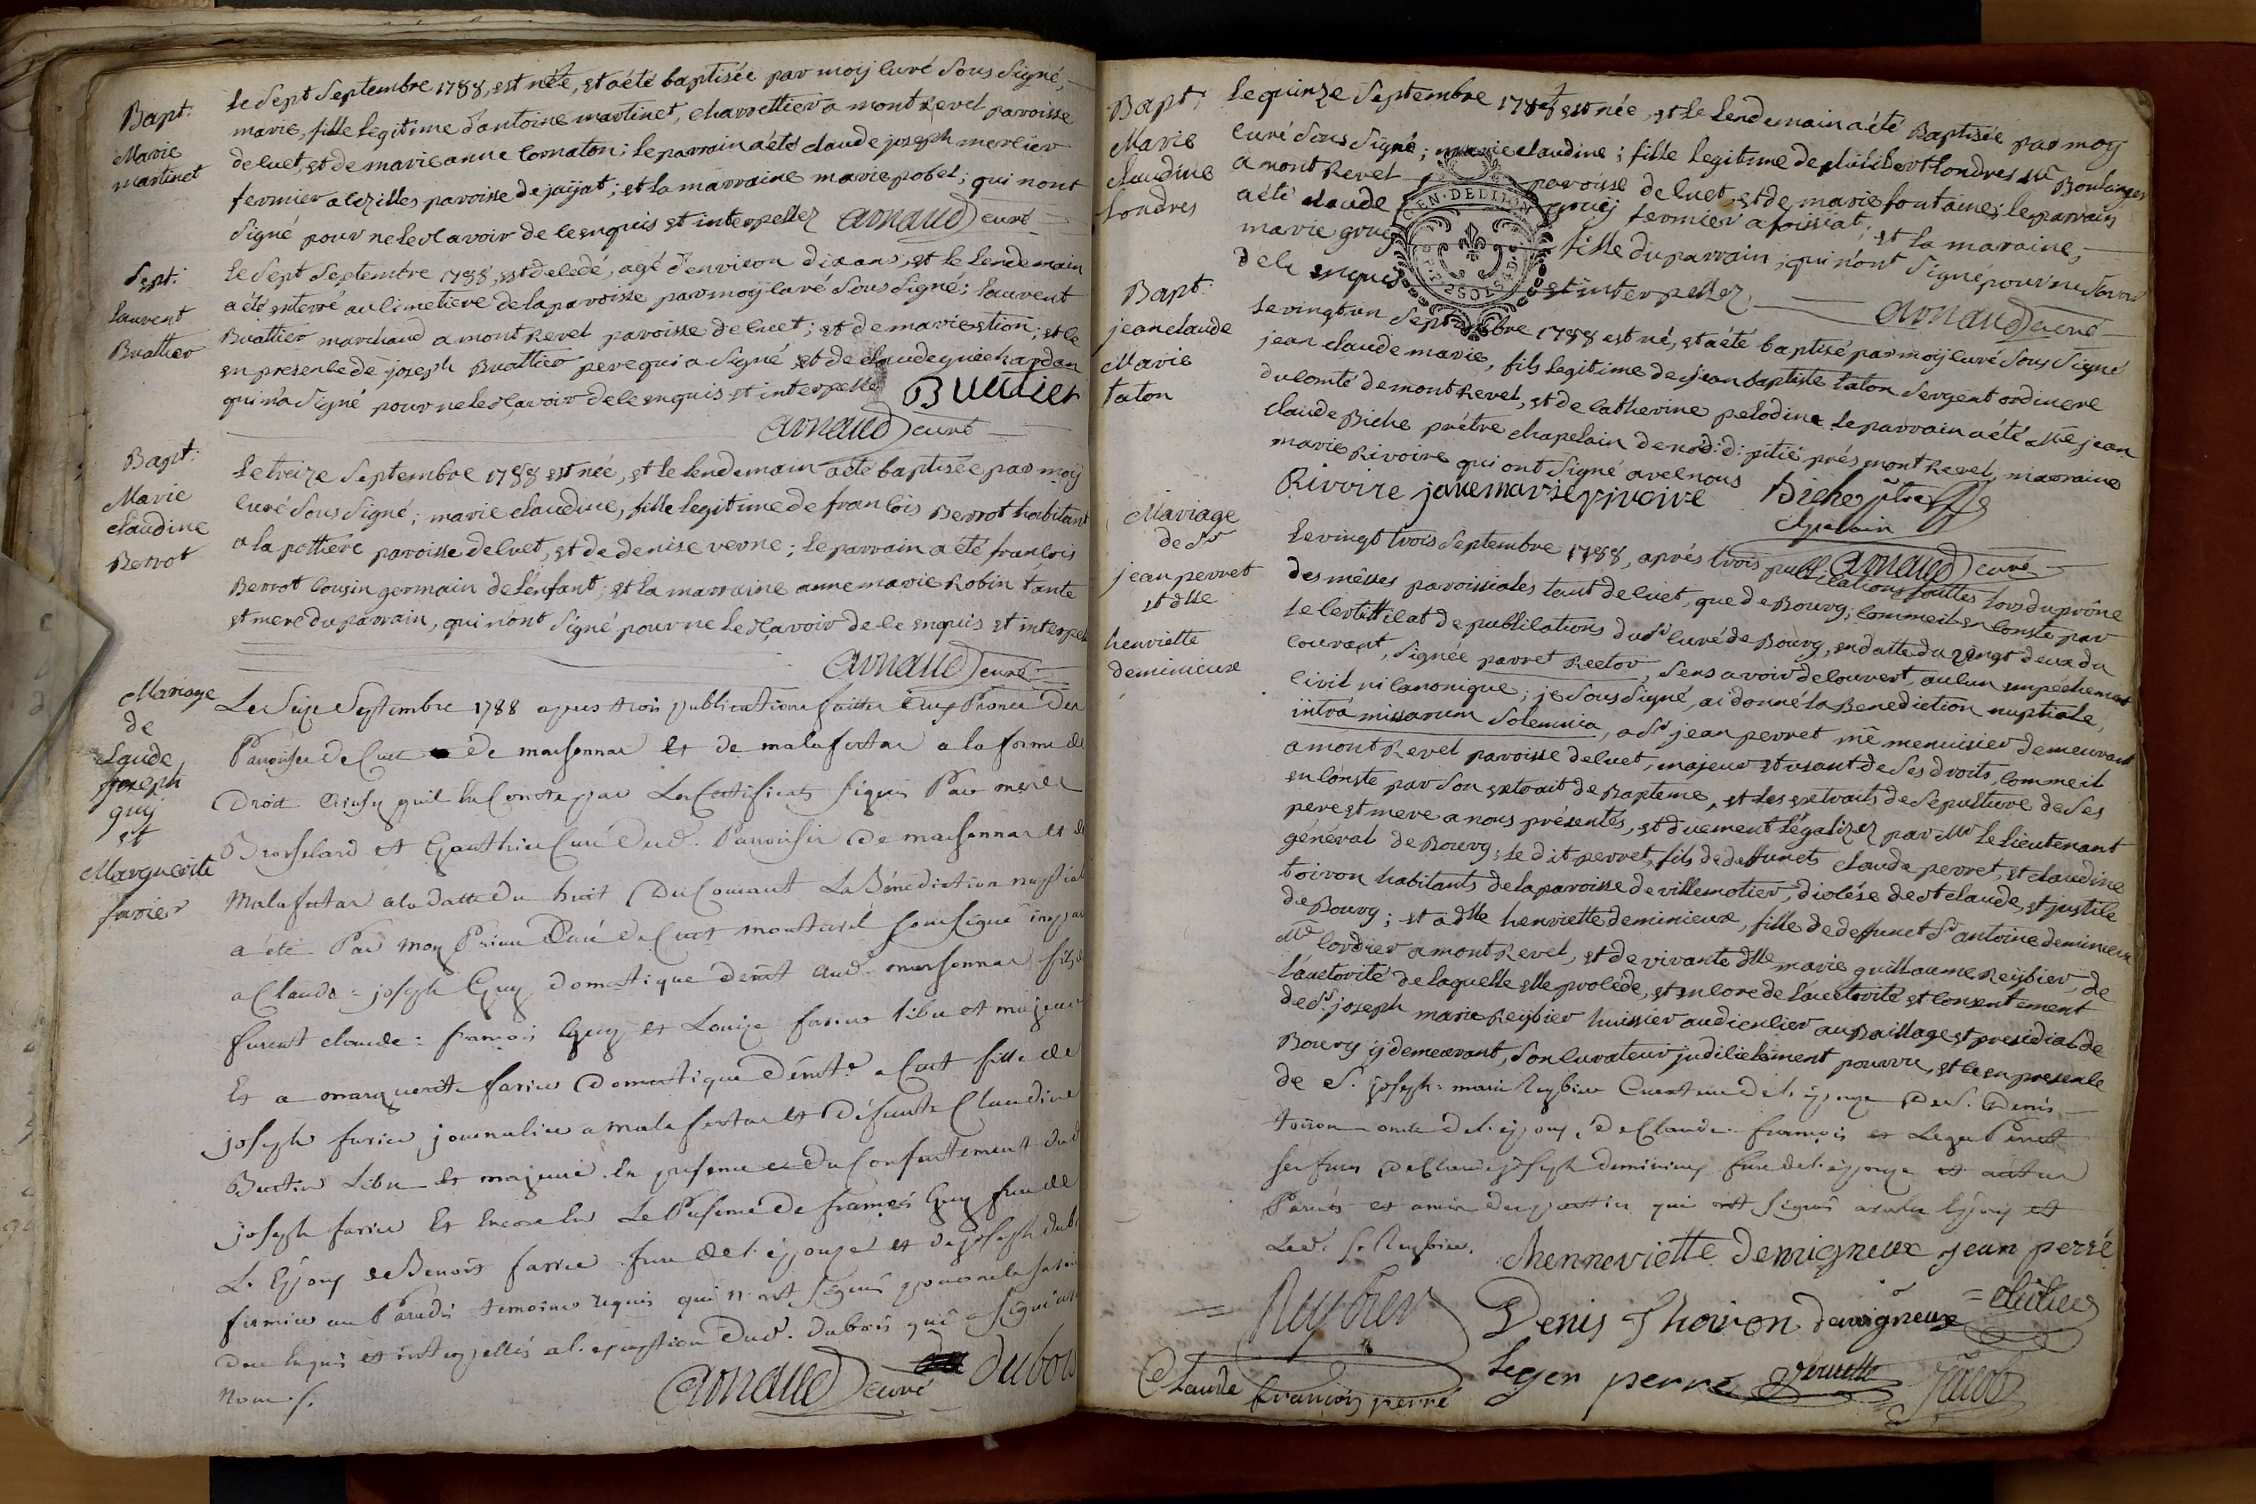 Bapt:
Marie
martinet
Le Sept Septembre 1788, est née, et a été baptisée par moy curé Sous Signé,
marie, fille legitime d'antoine martinet, charrettier a montrevel paroisse
de cuet, et de marie anne comaton; le parrain a été claude joseph mercier
fermier a cezilles paroisse de jayat; et la marraine marie pobel; qui n'ont
Signé pour ne le Scavoir de ce enquis et interpellez Arnaud curé
Sept:
laurent
Buattier
le Sept Septembre 1788, est decedé, agé d'environ dix ans, et le lendemain
a été enterré au cimetiere de la paroisse par moy curé Sous Signé; laurent
Buattier marchand a montrevel paroisse de cuet; et de marie stion; et le
en presence de joseph Buattier pere qui a Signé et de claude
qui n'a Signé pour ne le Scavoir de ce enquis et interpellé Buattier
Arnaud curé
Bapt:
Marie
claudine
Berrot
Le treize Septembre 1788 est née, et le lendemain a été baptisée par moy
curé Sous Signé; marie claudine, fille legitime de francois Berrot habitant
a la pottiere paroisse de cuet, et de denise verne; le parrain a été francois
Berrot cousin germain de l'enfant; et la marraine anne marie Robin tante
et mere du parrain, qui n'ont Signé pour ne le Scavoir de ce enquis et interpel
Arnaud curé
Mariage
de
claude
joseph
guy
et
Marguerite
farier
Le Seize Septembre 1788 apres trois publications faittes aux Prones des
Paroisses de Cuet de marsonnas et de malafretas a la forme de
Droit ainsy qu'il en Conste par Les Certificats signés Par messrs
Brosselard et Gauthier Curé desd. Paroisses de marsonnas et de
Malafretas a la datte du huit du Courant La Bénédiction nuptial
a été Par moy Prieur Curé de Cuet montrevel soussigné
a Claude-joseph Guy domestique demt aud. marsonnas fils de
furent claude-françois Guy et Louise farier libre et majeur
Et a marguerite farier Domestique demte a Cuet fille de
joseph farier journalier a malafretas et défunte Claudine
Buttin Libre et majeure. En presence et du Consentement dud
joseph farier Et Encore en La Presence de françois Guy frere de
L'Epoux de Benoit farier frere de l'épouse et de joseph dub
fermier au Paradis temoins requis qui n'ont signés pour ne le savoir
de ce Enquis et interpellés a l'exception dud. dubois qui a signé avec
nous ./.
Arnaud curé dubois
Bapt:
Marie
claudine
Londres
Le quinze Septembre 1788 est née, et le lendemain a été Baptisée par moy
curé Sous Signé; marie claudine; fille legitime de philibert Londres me Boulanger
a montrevel paroisse de cuet, et de marie fontaine; le parrain
a été claude guy fermier a foissiat; et la maraine,
marie guy fille du parrain; qui n'ont Signé pour ne Savoir
de ce enquis et interpellez Arnaud curé
GEN. DE DIJON
Bapt:
jean claude
Marie
taton
Le vingt un Septembre 1788 est né, et a été baptisé par moy curé Sous Signé
jean claude marie, fils legitime de jean baptiste taton Sergent ordinere
du comté de montrevel, et de catherine pelodine. le parrain a été Mre jean
claude Biche prétre chapelain de n:d: d: pitié prés montrevel, marraine
marie Rivoire qui ont Signé avec nous
Rivoire jane marie rivoire Biche ptre
Chapelain
Arnaud curé
Mariage
de Sr
jean perret
et dlle
henriette
deminieux
Le vingt trois Septembre 1788, aprés trois publications faittes lors du prône
des mêsses paroissiales tant de cuet, que de Bourg; comme il en conste par
le certificat de publications du Sr curé de Bourg, en datte du vingt deux du
courant, Signée parret Rector, Sens avoir decouvert, aucun empéchement
civil ni canonique; je Sous Signé, ai donné la Benediction nuptiale,
intrá missarum Solemnia, a Sr jean perret me menuisier demeurant
a montrevel paroisse de cuet, majeur et usant de Ses droits, comme il
en conste par Son extrait de Bapteme, et les extraits de Sepulture de Ses
pere et mere a nous présentés, et duement légalizez par Mr le lieutenant
général de Bourg; le dit perret, fils de deffunets claude perret, et claudine
toiron habitants de la paroisse de villemotier, diocése de st claude, et justice
de Bourg; et a dlle henriette deminieux, fille de deffunct Sr antoine deminieux
Me cordier a montrevel, et de vivante dlle marie guillaume Reybier, de
l'auctorité de laquelle elle procéde, et encore de l'auctorité et consentement
de Sr joseph marie Reybier huissier audiencier au Baillage et presidial de
Bourg y demeurant, Son curateur judicielement pourvu, et ce en presence
de S. joseph-marie Reybier Curateur de l'épouze de S. Denis
toiron oncle de l'époux, de Claude-françois et Leger Perret
ses freres de Claude joseph deminieux frere de l'épouze et autres
Parents et amis des parties qui ont signés avec les Epoux et
Led. S. Reybier.
henneriette demigneux jean perré
Reybier Denis Thoiron demigneux
Claude françois perré leger perré